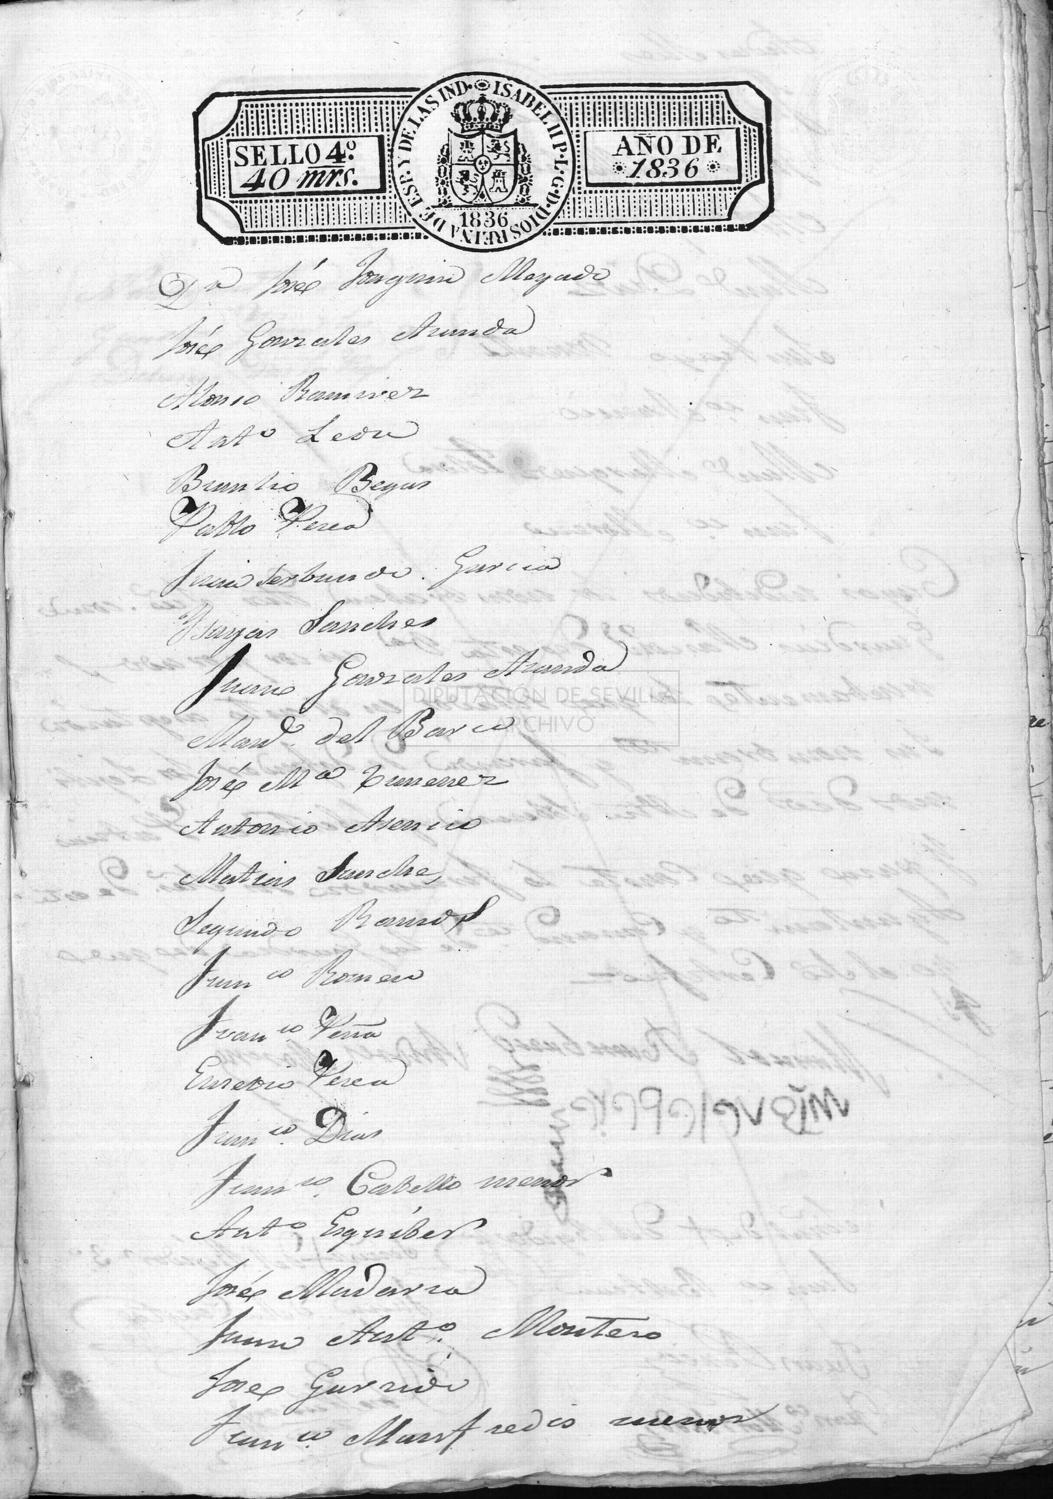 ISABEL II P. L. G. D. DIOS REINA DE ESP. Y DE LAS IND.
SELLO 4º.
40 mrs.
AÑO DE
1836
1836
Dn José Joaquin
José Gonzales Aranda
Alonso Ramirez
Antº Leon
Braulio Begas
Pablo Perea
Juan Garcia
Bargas Sanches
Juan Gonzales Aranda
Manl. del Barco
José Mª Ximenez
Antonio Asencio
Matias Sanches
Segundo Ramos
Franco Romero
Franco Peña
Eusebio Perea
Franco. Dias
Franco. Cabello menor
Antº Esquiber
José Madarra
Juan Antº. Montero
José Garrido
Franco Manfredis menor
DIPUTACIÓN DE SEVILLA
ARCHIVO